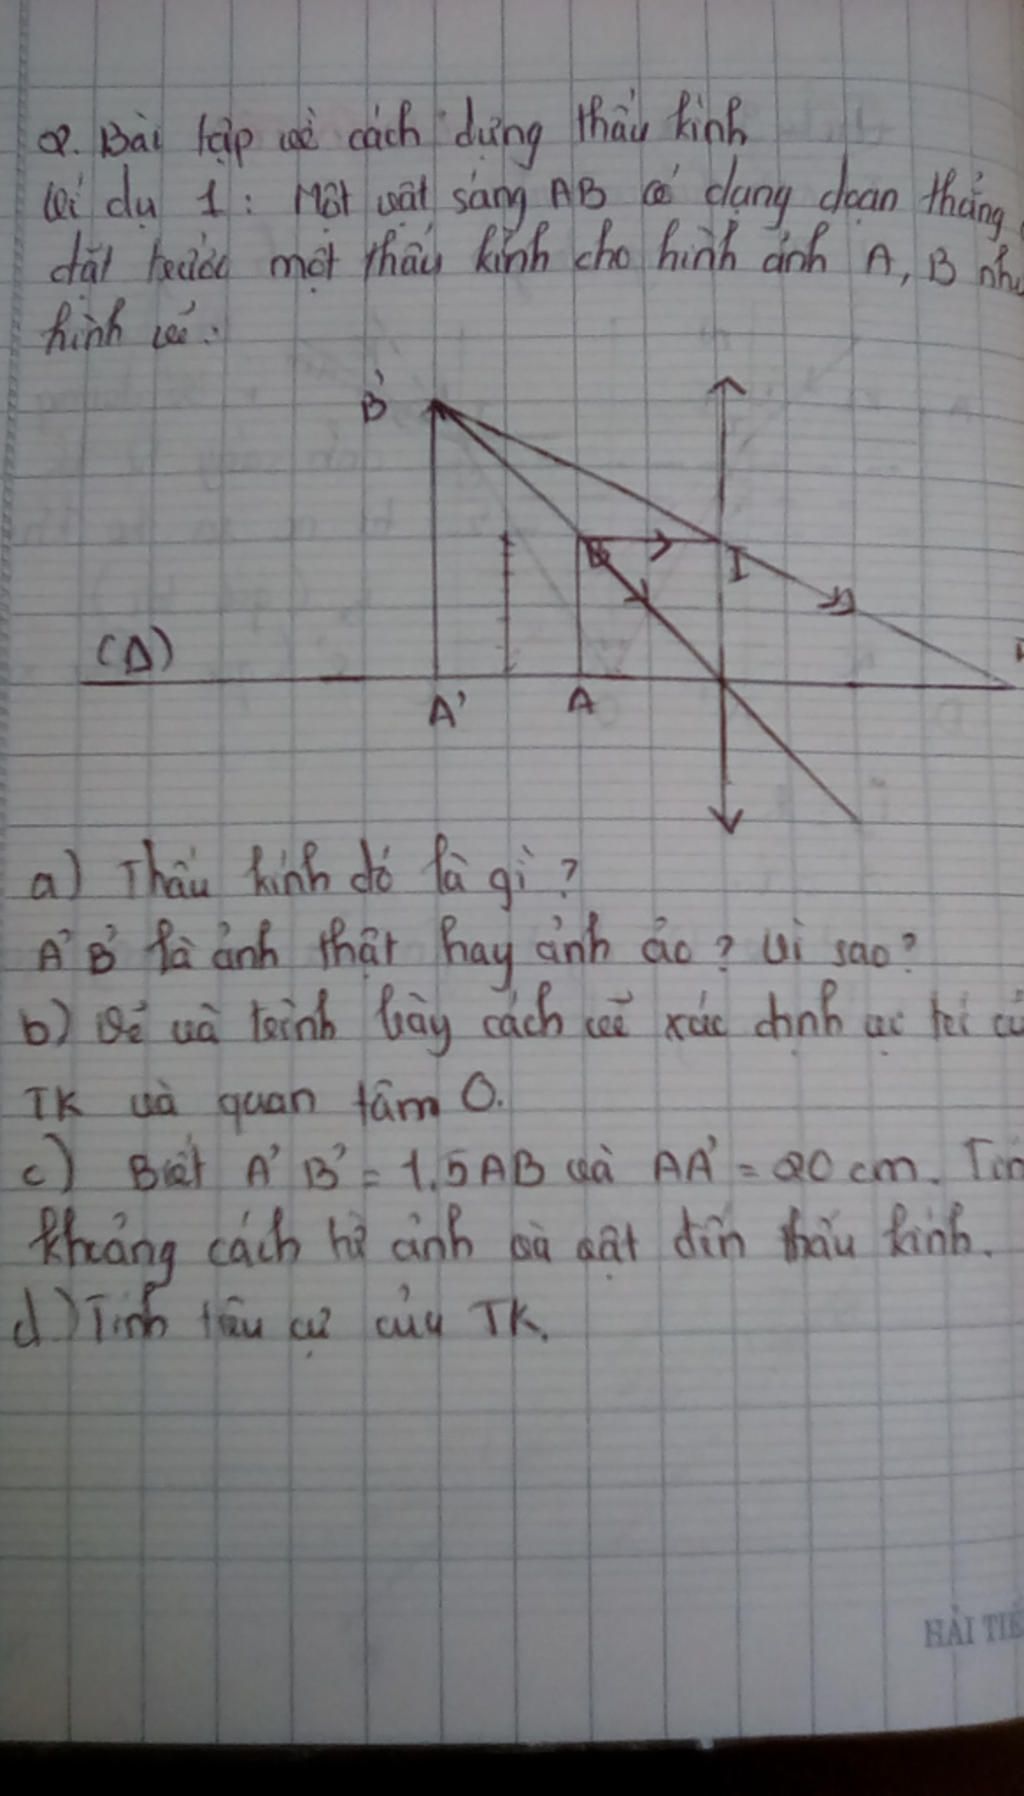 2. Bài tập về cách dựng thấu kính
Ví dụ 1: Một vật sáng AB có dạng đoạn thẳng
đặt trước một thấu kính cho hình ảnh A, B như
hình vẽ:
B'
B
I
(Δ)
A'
A
a) Thấu kính đó là gì?
A'B' là ảnh thật hay ảnh ảo? Vì sao?
b) Vẽ và trình bày cách vẽ xác định vị trí củ
TK và quan tâm O.
c) Biết A'B' = 1,5AB và AA' = 20 cm. Tín
khoảng cách từ ảnh và vật đến thấu kính.
d) Tính tiêu cự của TK.
HẢI TIẾ